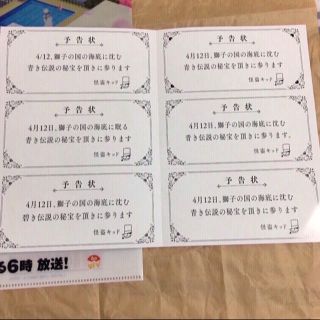 予告状
4/12、獅子の国の海底に沈む
青き伝説の秘宝を頂きに参ります
怪盗キッド
予告状
4月12日、獅子の国の海底に沈む
青き伝説の秘宝を頂きに参ります
怪盗キッド
予告状
4月12日、獅子の国の海底に眠る
青き伝説の秘宝を頂きに参ります
怪盗キッド
予告状
4月12日、獅子の国の海底に沈む
青き伝説の秘宝を頂きに参ります
怪盗キッド
予告状
4月12日、獅子の国の海底に沈む
碧き伝説の秘宝を頂きに参ります
怪盗キッド
予告状
4月12日、獅子の国の海底に沈む
青き伝説の秘宝を頂きに参ります
怪盗キッド
6時 放送!